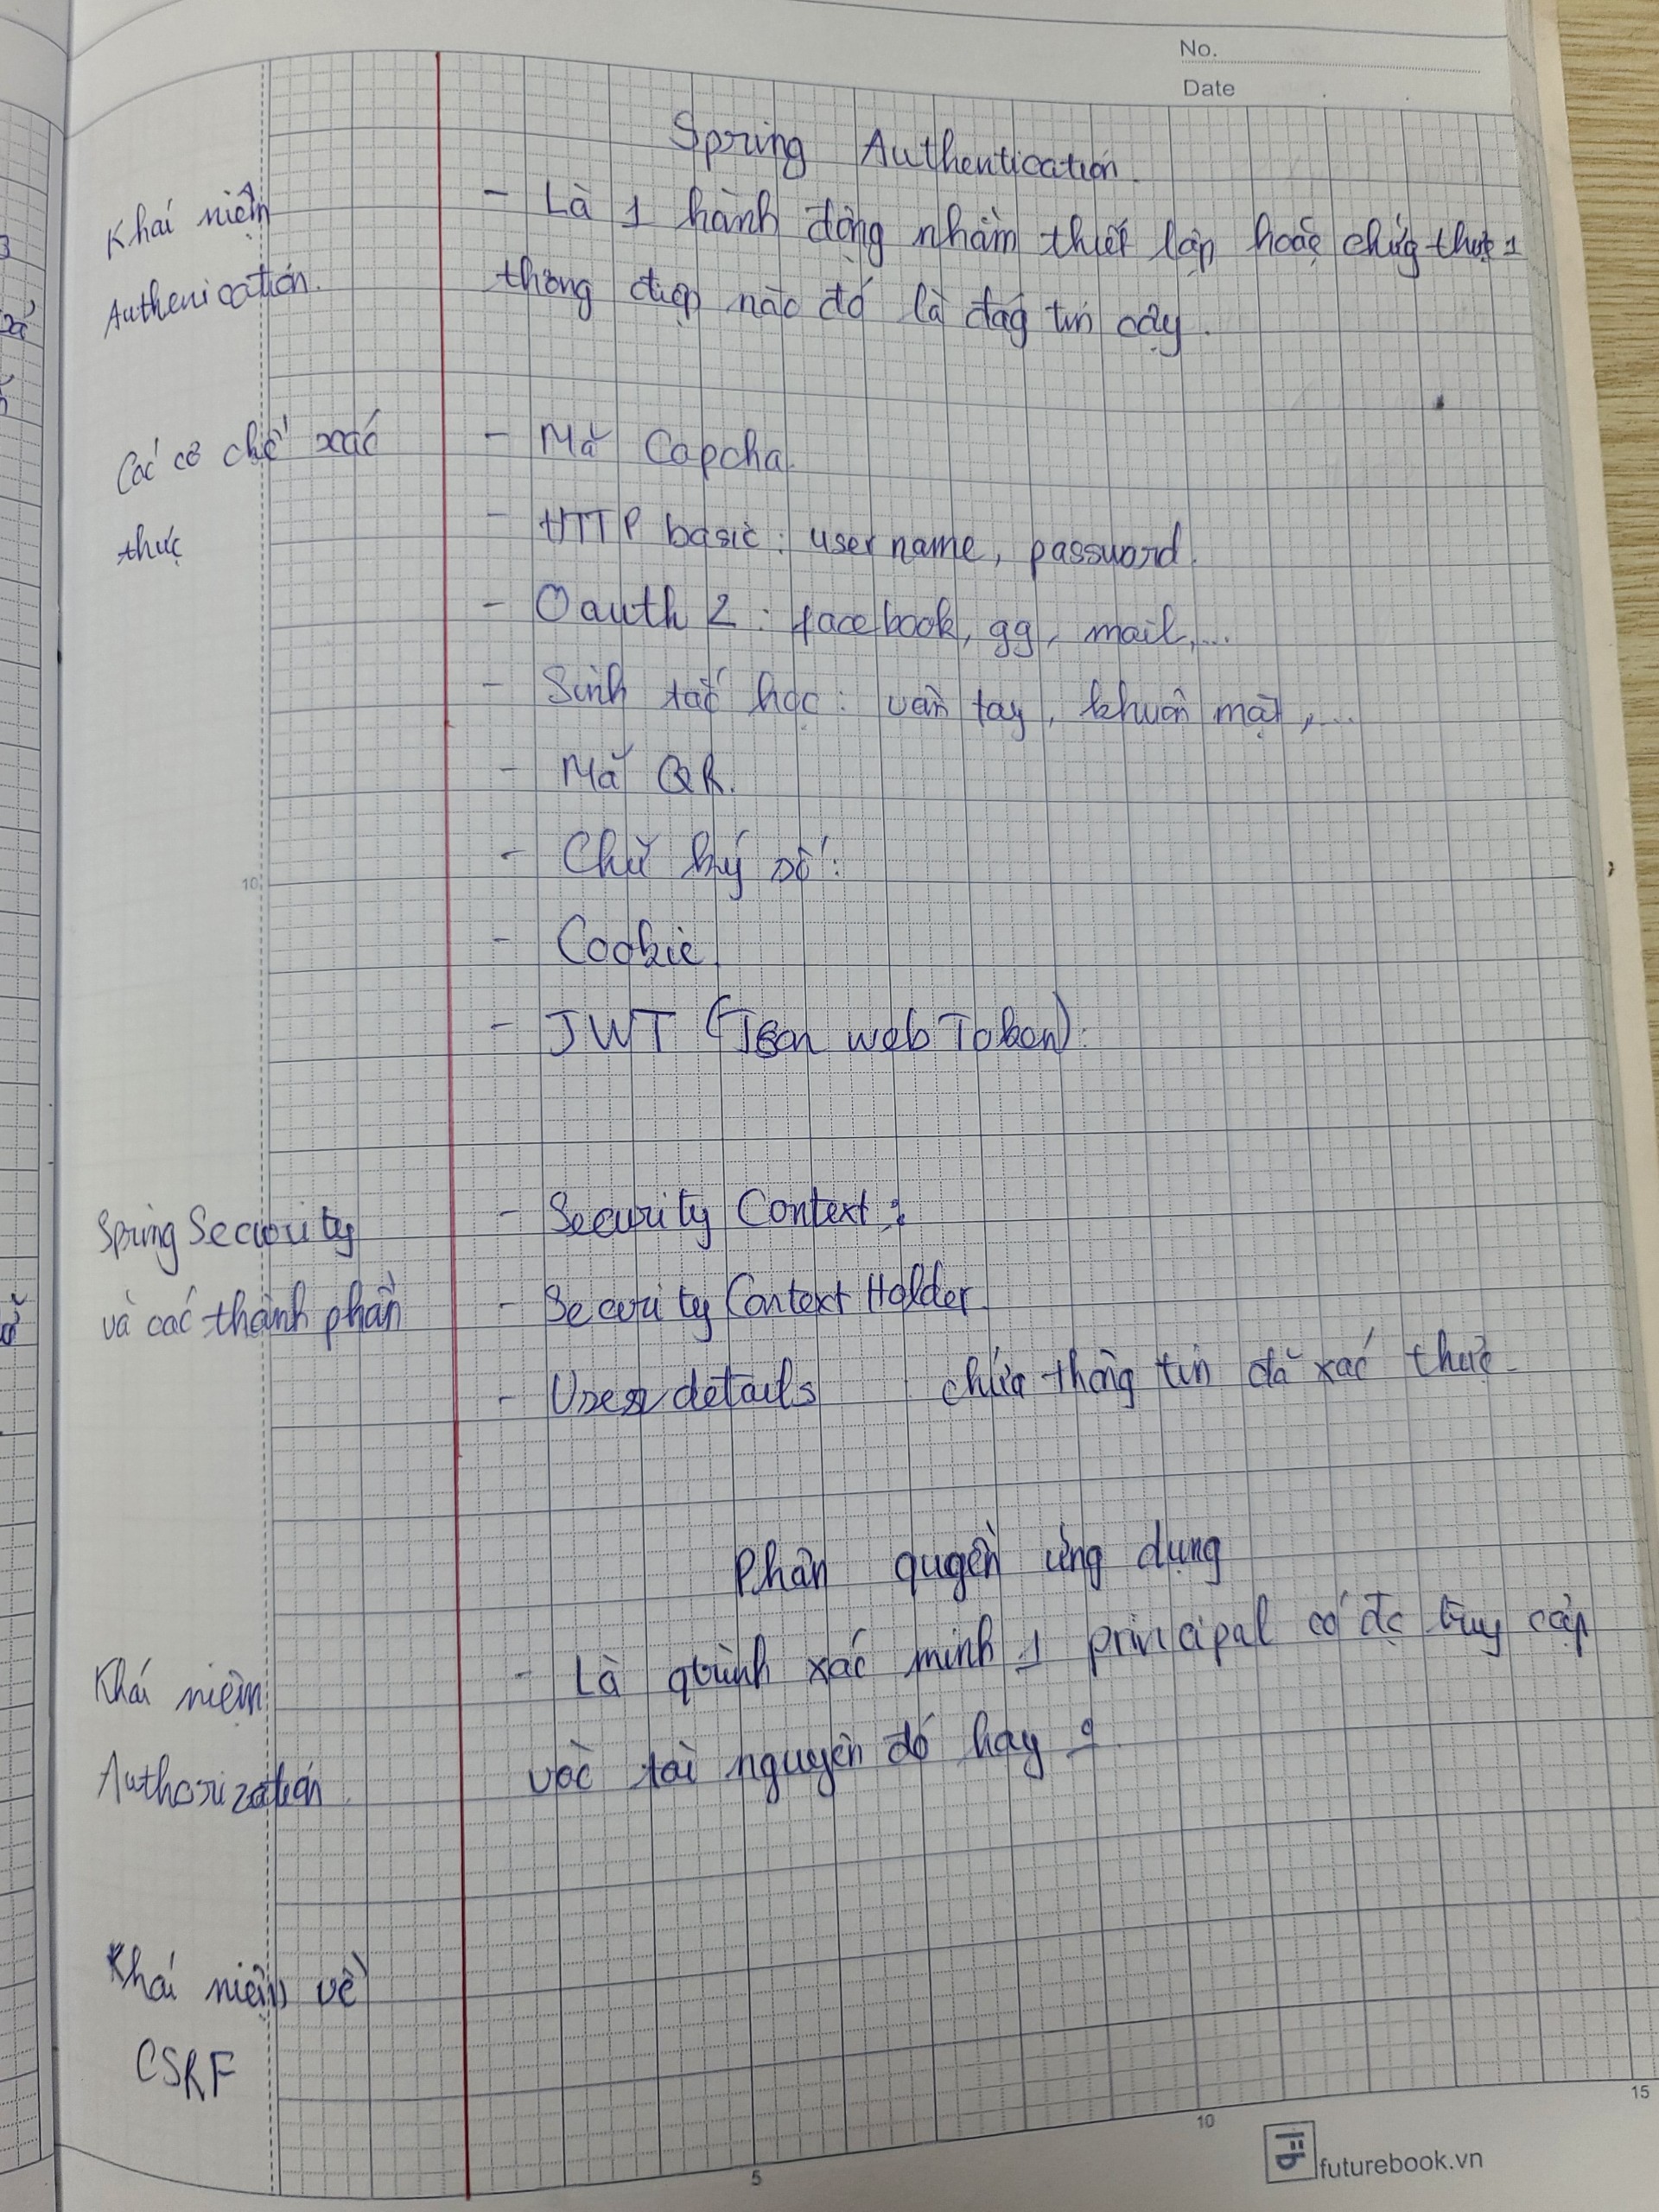 No.
Date
Spring Authentication.
Khái niệm
Authenication.
- Là 1 hành động nhằm thiết lập hoặc chứng thực 1
thông điệp nào đó là đág tin cậy.
Các cơ chế xác
thức
- Mã Capcha.
- HTTP basic: user name, password.
- Oauth 2: facebook, gg, mail,...
- Sinh tắc học: vân tay, khuôn mặt,...
- Mã QR.
- Chữ ký số:
- Cookie.
- JWT (Json web Token):
10
Spring Security
và các thành phần
- Security Context:
- Security Context Holder.
- User details chứa thông tin đã xác thực.
Phân quyền ứng dụng
Khái niệm
Authorization.
- Là qtrình xác minh 1 principal có đc truy cập
vào tài nguyên đó hay
Khái niệm về
CSRF
5
10
15
futurebook.vn